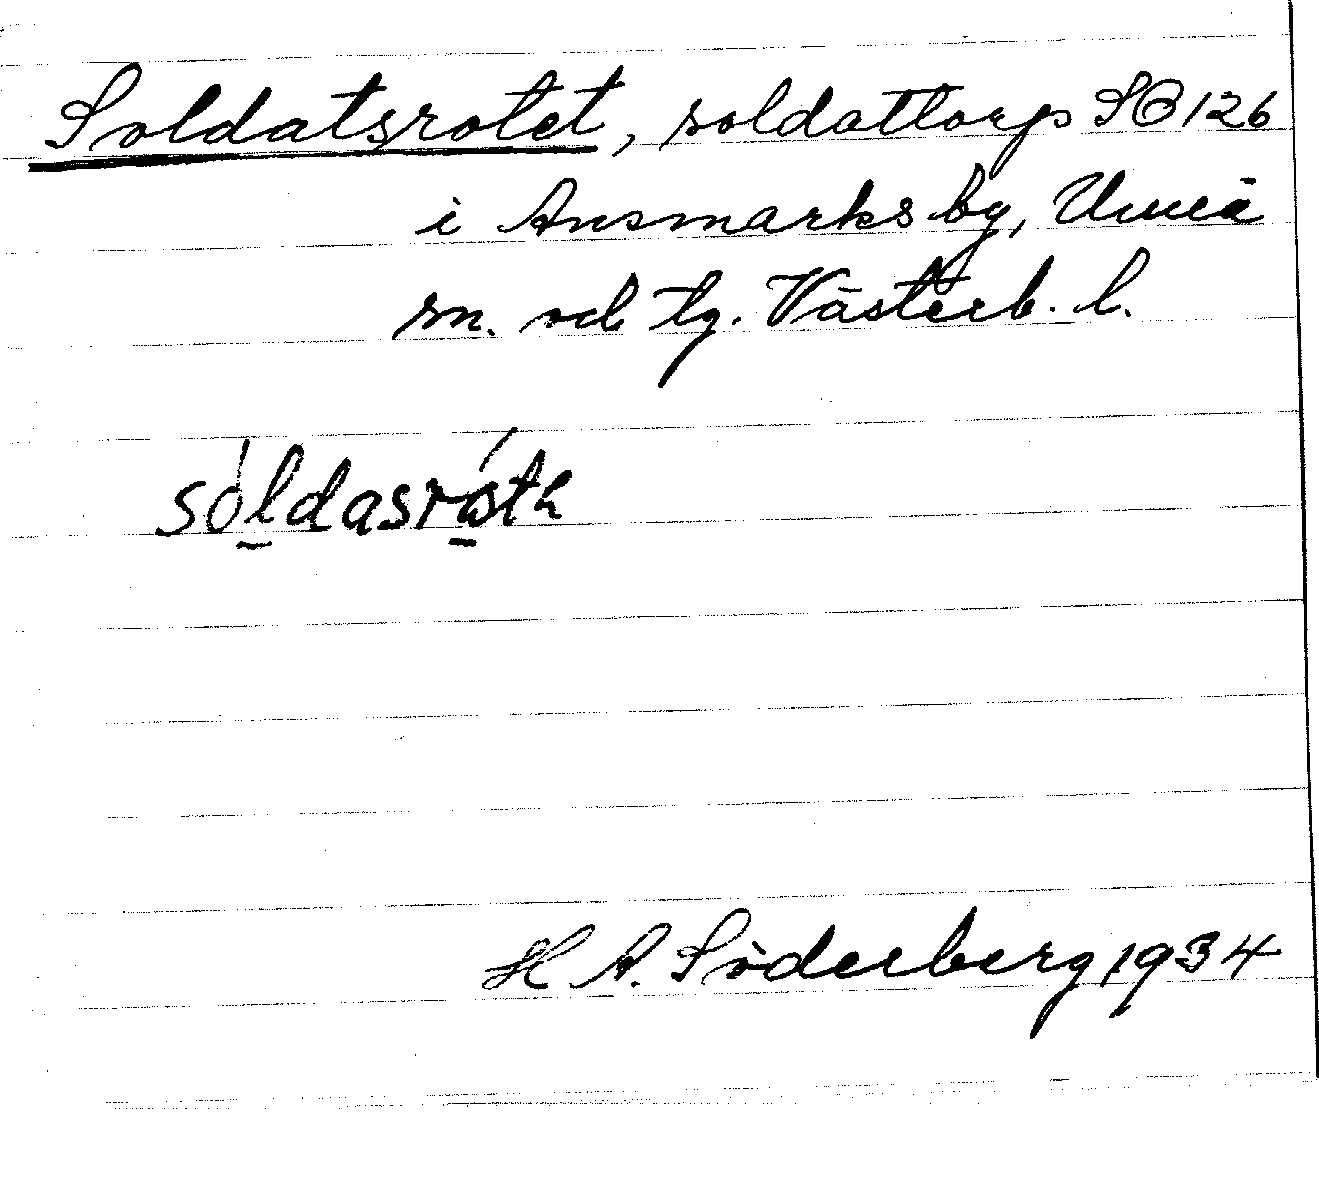 Soldatsrotet, soldattorp SB 126
i Ansmarks by, Umeå
sn. och tg. Västerb. l.
H A. Söderberg 1934